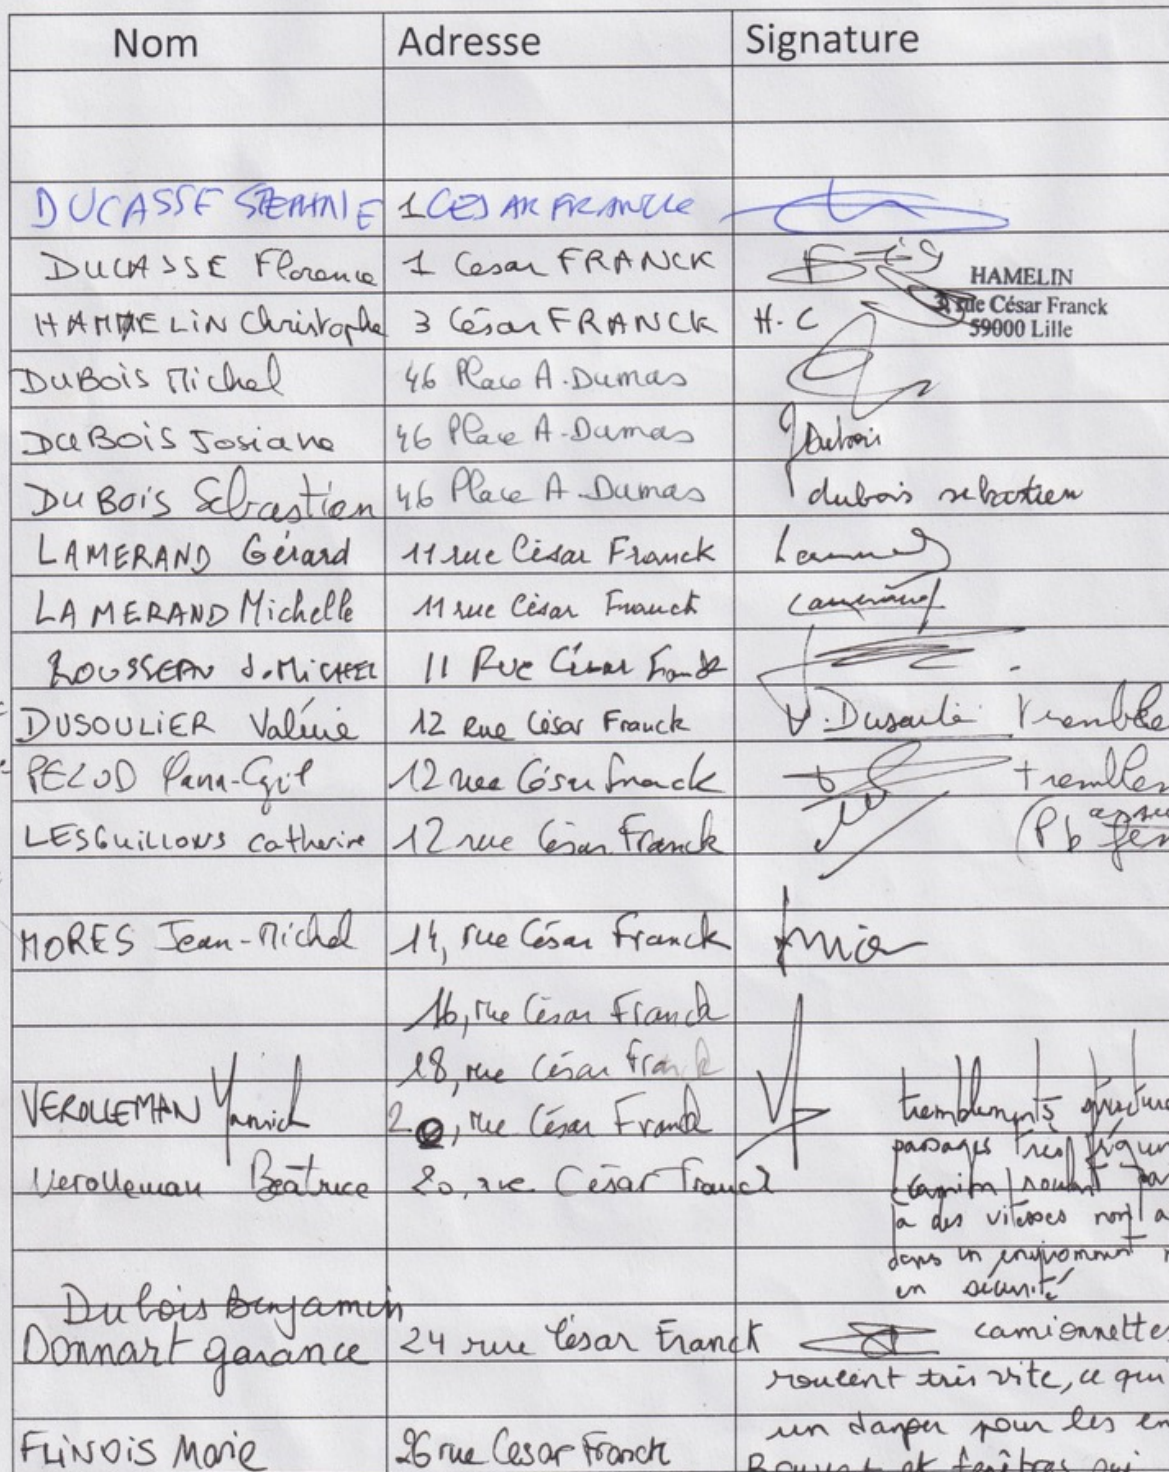 Nom Adresse Signature
DUCASSE STEPHANIE 1 CESAR FRANCK
DUCASSE Florence 1 Cesar FRANCK
HAMELIN
3, rue César Franck
59000 Lille
HAMMELIN Christophe 3 César FRANCK H.C
DUBOIS Michel 46 Place A.Dumas
DUBOIS Josiane 46 Place A-Dumas JDubois
DUBOIS Sébastien 46 Place A.Dumas dubois sebastien
LAMERAND Gérard 11 rue César Franck
LAMERAND Michelle 11 rue César Franck
ROUSSEAU J.MICHEL 11 Rue César Franck
DUSOULIER Valérie 12 rue César Franck V.Dusoulie tremble
PELUD 12 rue César Franck tremblem
LESGUILLONS catherine 12 rue César Franck (Pb
MORES Jean-Michel 14, rue César Franck
16, rue César Franck
18, rue César Franck
VEROLLEMAN Yannick 20, rue César Franck tremblements structure
passages très fréquen
Verolleman Béatrice 20, rue César Franck camion roulant par
à des vitesses non a
dans un environnement
en sécurité
Dubois Benjamin
Donnart garance 24 rue César Franck camionnettes
roulent très vite, ce qui
un danger pour les en
FLINOIS Marie 26 rue César Franck
et fenêtres qui